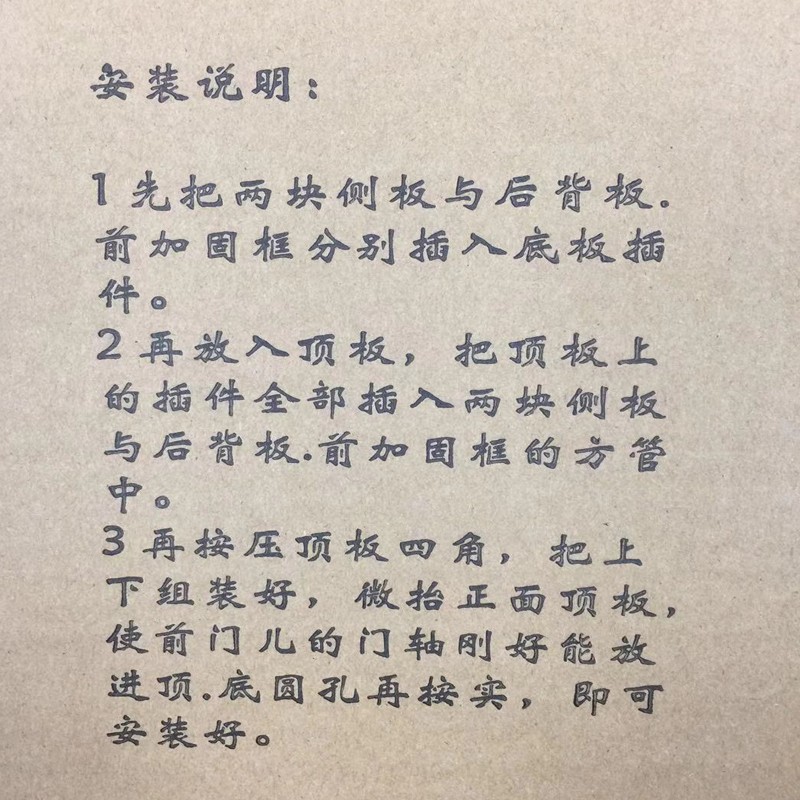 安装说明：
1先把两块侧板与后背板.
前加固框分别插入底板插
件。
2再放入顶板，把顶板上
的插件全部插入两块侧板
与后背板.前加固框的方管
中。
3再按压顶板四角，把上
下组装好，微抬正面顶板，
使前门儿的门轴刚好能放
进顶.底圆孔再按实，即可
安装好。